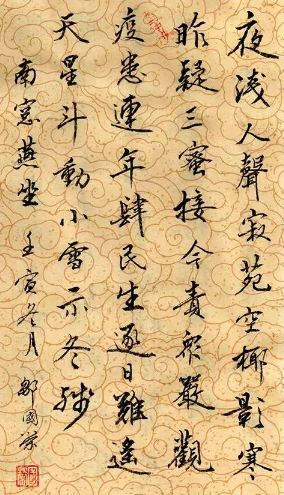 夜淺人聲寂苑空椰影寒
昨疑三蜜接今責眾嚴觀
疫患連年肆民生逐日難遙
天星斗動小雪示冬殘
南窓燕坐 壬寅冬月 鄒國榮